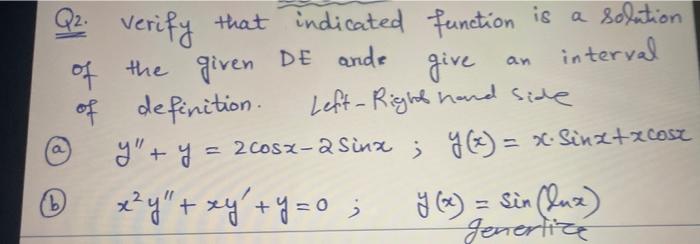 Q2. verify that indicated function is a solution
of the given DE and give an interval
of definition. Left-Right hand side
(a) y" + y = 2cosx - 2Sinx ; y(x) = x·Sinx+xcosx
(b) x²y" + xy' + y = 0 ; y(x) = Sin(lnx)